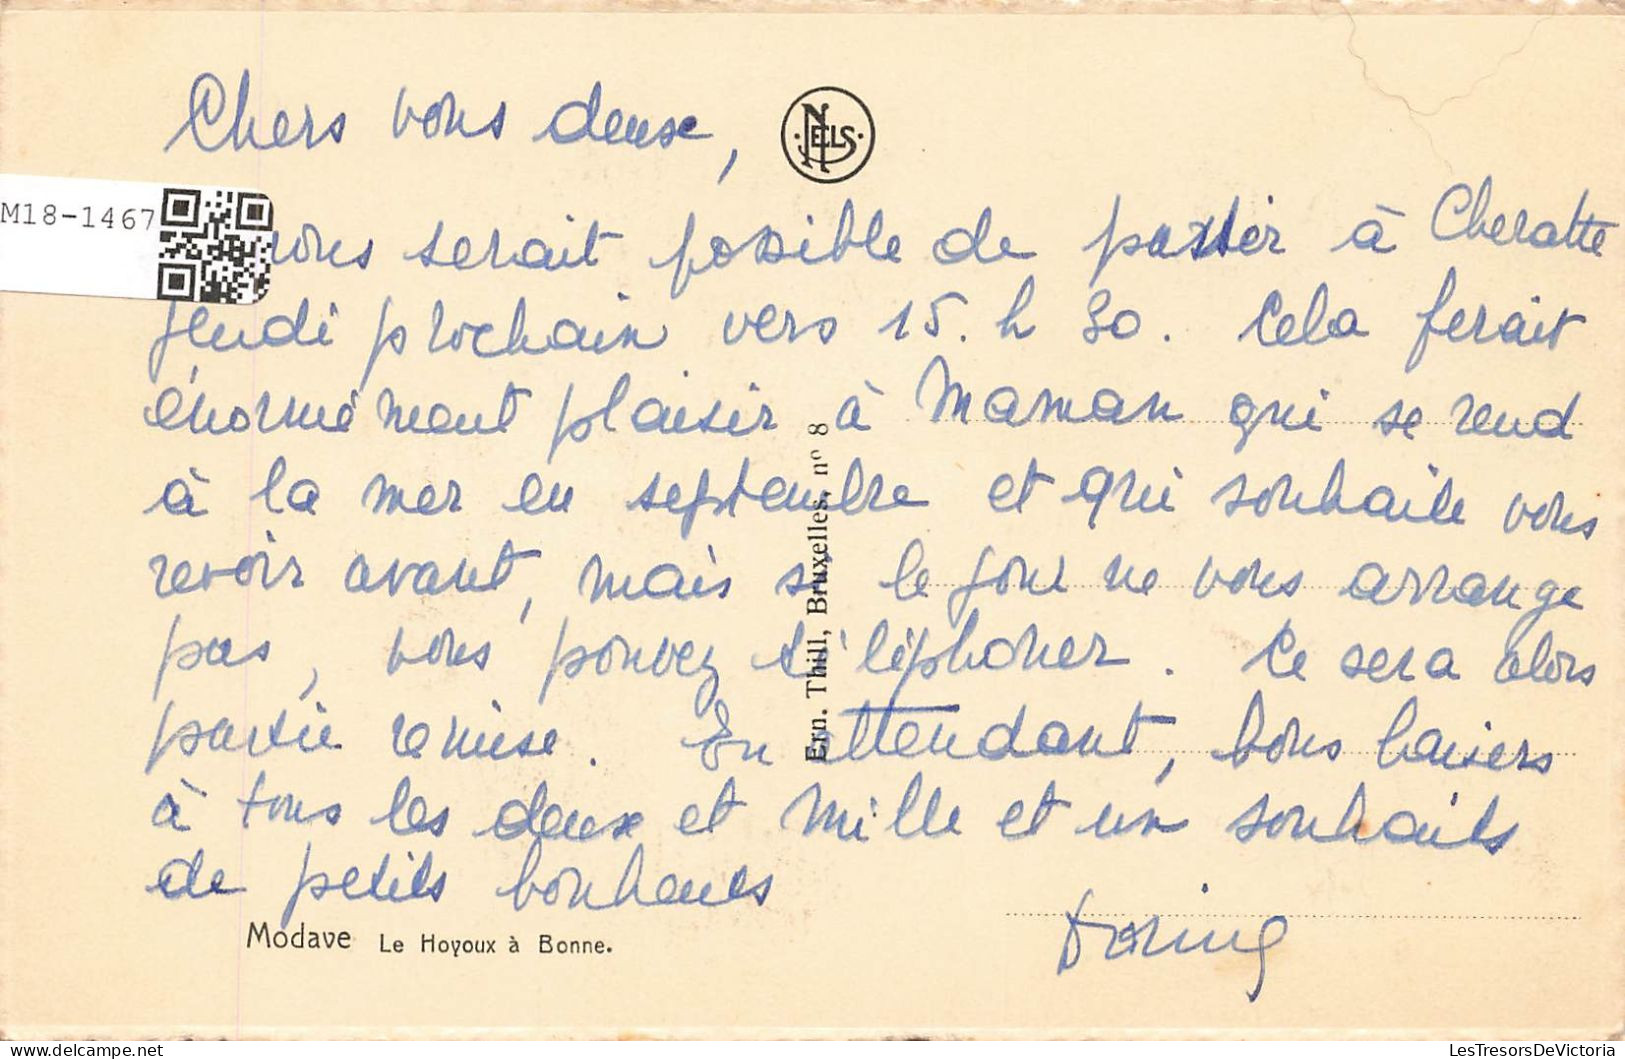 Chers vous deux,
NELS
M18-1467
vous serait possible de passer à Cheratte
jeudi prochain vers 15. h 30. Cela ferait
énormément plaisir à Maman qui se rend
à la mer en septembre et qui souhaite vous
revoir avant, mais si le jour ne vous arrange
pas, vous pouvez téléphoner. Ce sera alors
partie remise. En attendant, bons baisers
à tous les deux et mille et un souhaits
de petits bonheurs
Ern. Thill, Bruxelles, nº 8
Modave Le Hoyoux à Bonne.
LesTresorsDeVictoria